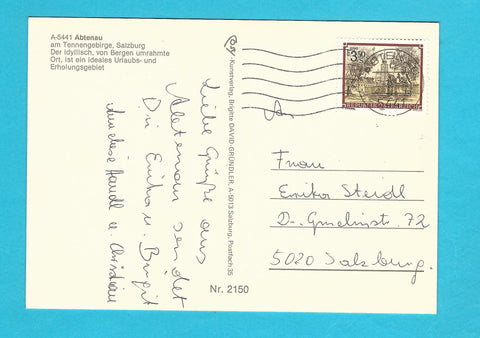 A-5441 Abtenau
am Tennengebirge, Salzburg
Der idyllisch, von Bergen umrahmte
Ort, ist ein ideales Urlaubs- und
Erholungsgebiet
Liebe Grüße aus
Abtenau sendet
Dir Erika u. Birgit
Anneliese Handl u. Christine
Kunstverlag, Brigitte DAVID-GRÜNDLER, A-5013 Salzburg, Postfach 35
Nr. 2150
3.50
REPUBLIK ÖSTERREICH
An
Frau
Erika Steidl
Dr. Gmelinstr. 72
5020 Salzburg.